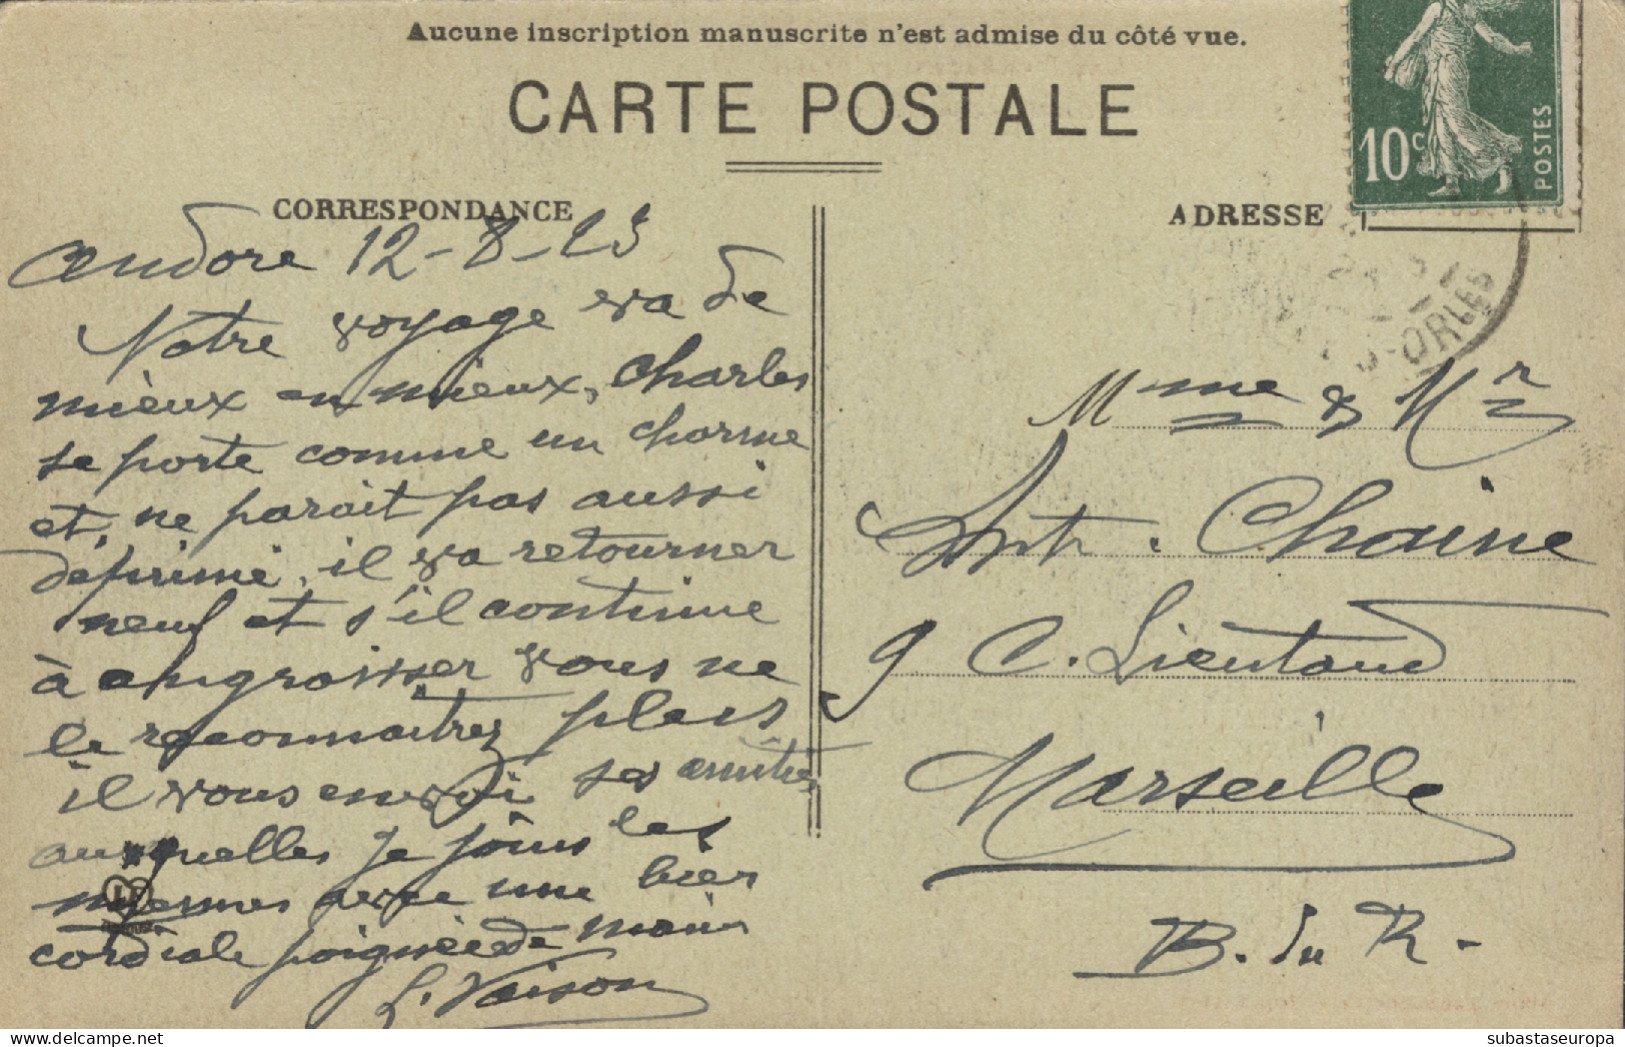 Aucune inscription manuscrite n'est admise du côté vue.
CARTE POSTALE
CORRESPONDANCE
ADRESSE
10c
POSTES
ORLES
Andore 12-8-23
Notre voyage va de
mieux en mieux, Charles
se porte comme un charme
et, ne parait pas aussi
déprimé, il va retourner
neuf et s'il continue
à angroisser vous ne
le reconnaitrez plus
il vous envoi ses amitiés
auxquelles je joins les
miennes avec une bien
cordiale poignée de main
L. Vaison
Mme & Mr
Ant. Chaine
9 C. Lieutaud
Marseille
B. du R.
subastaseuropa